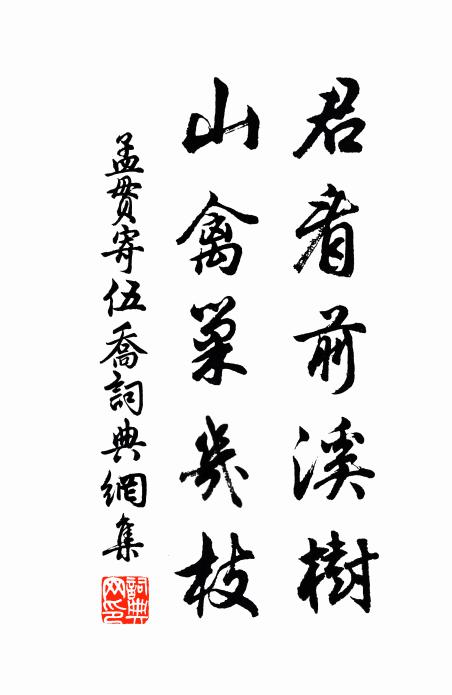 君看前溪樹
山禽巢幾枝
孟貫寄伍喬詞典網集
詞典網印